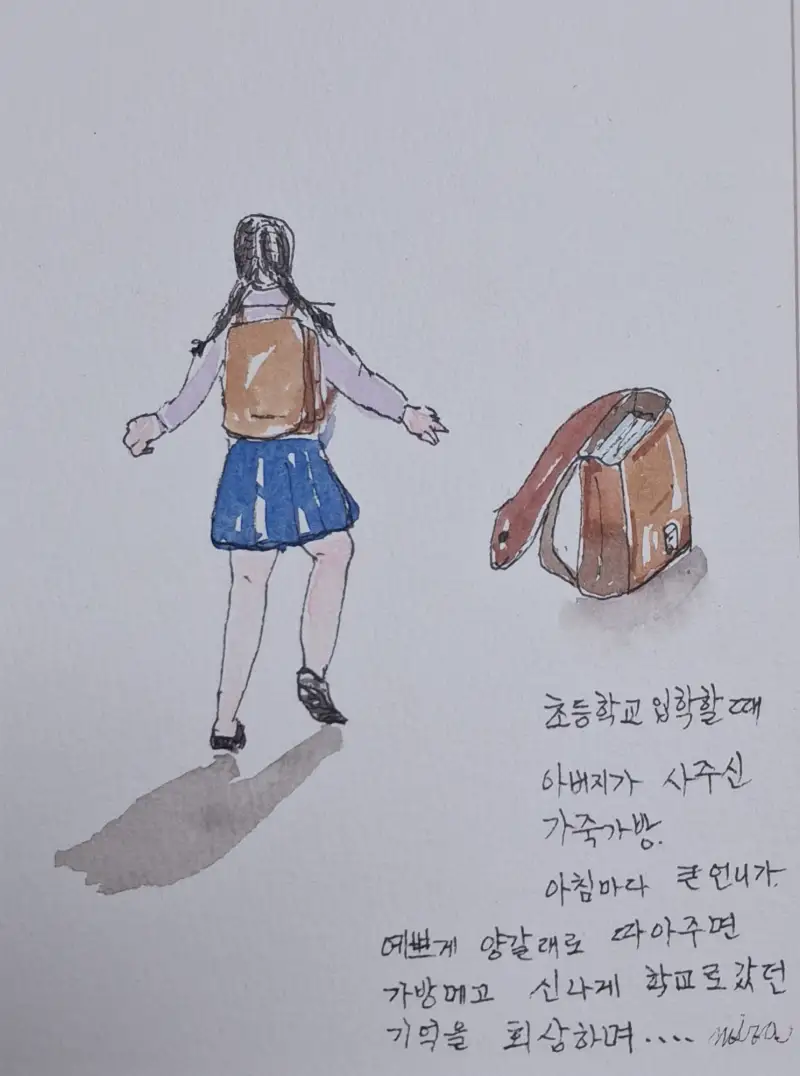 초등학교 입학할 때
아버지가 사주신
가죽가방.
아침마다 큰언니가
예쁘게 양갈래로 따아주면
가방메고 신나게 학교로 갔던
기억을 회상하며....